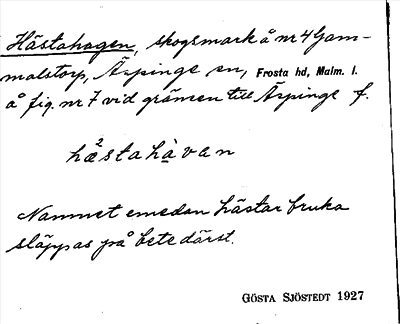 Hästahagen, skogsmark å nr 4 Gam-
malstorp, Äspinge sn, Frosta hd, Malm. l.
å fig. nr 7 vid gränsen till Äspinge f.
hæ²stahàvan
Namnet emedan hästar bruka
släppas på bete därst.
GÖSTA SJÖSTEDT 1927